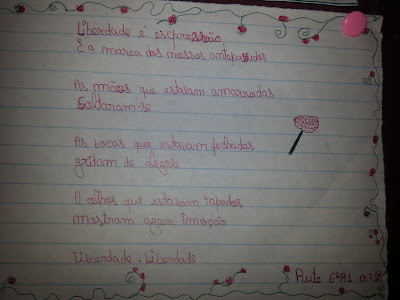 Liberdade é expressão
É a marca dos nossos antepassados
As mãos que estavam amarradas
Soltaram-se
As bocas que estavam fechadas
gritam de alegria
O olhos que estavam tapados
mostram agora imoção
Liberdade, Liberdade
Rute 6ºA1 nº